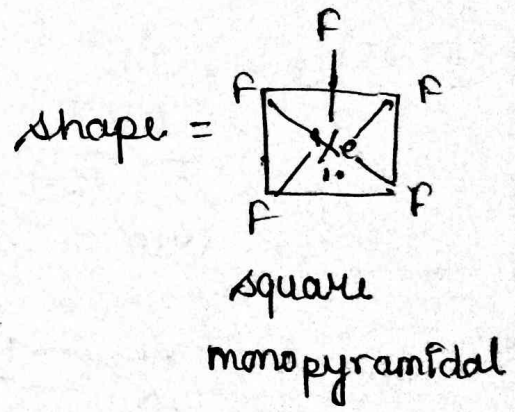 F
F F
shape = Xe
F F
square
monopyramidal